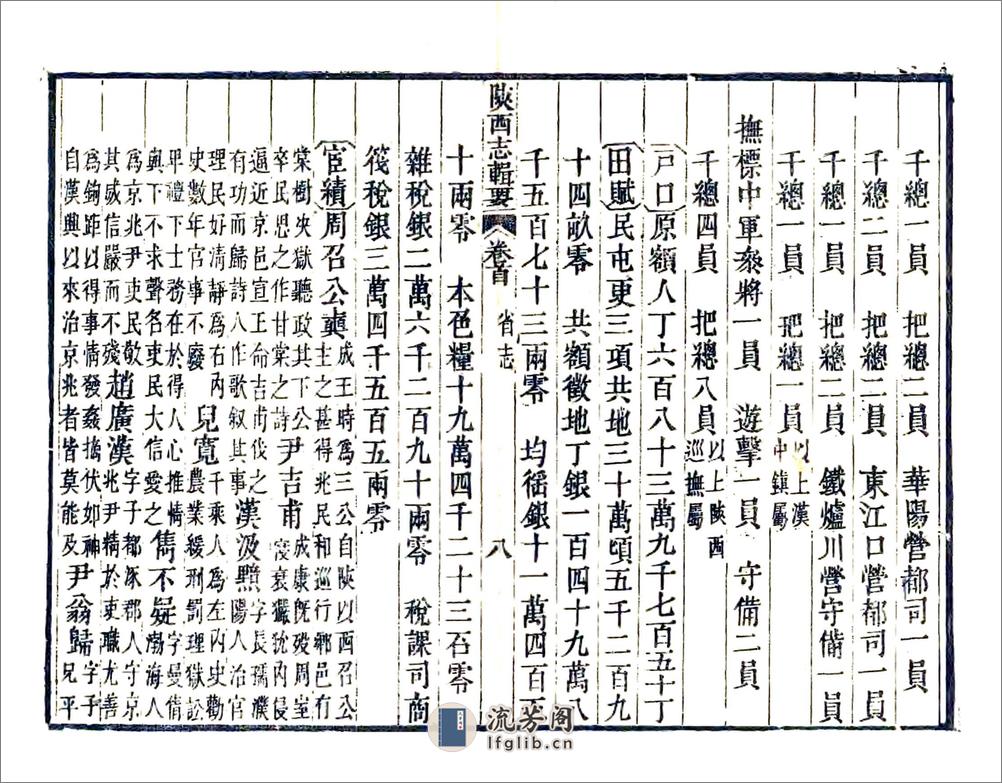 千總一員　把總二員　華陽營都司一員
千總二員　把總二員　東江口營都司一員
千總一員　把總二員　鐵爐川營守備一員
千總一員　把總一員 以上漢中鎮屬
撫標中軍叅將一員　遊擊一員　守備二員
千總四員　把總八員 以上陝西巡撫屬
戸口原額人丁六百八十三萬九千七百五十丁
田賦民屯更三項共地三十萬頃五千二百九
十四畝零　共額徵地丁銀一百四十九萬八
千五百七十三兩零　均徭銀十一萬四百五
陝西志輯要　卷首　省志　八
十兩零　本色糧十九萬四千二十三石零
雜稅銀二萬六千二百九十兩零　稅課司商
筏稅銀三萬四千五百五兩零
宦績 周召公奭 成王時爲三公自陝以西召公主之甚得兆民和巡行鄉邑有
棠樹央獄聽政其下公卒民思之作甘棠之詩 尹吉甫 成康旣歿周室寖衰玁狁內侵
逼近京邑宣王命吉甫伐之有功而歸詩人作歌叙其事 漢汲黯 字長孺濮陽人治官
理民好淸靜爲右內史數年官事不廢 兒寬 千乘人爲左內史勸農業緩刑罰理獄訟
卑禮下士務在於得人心推情與下不求聲名吏民大信愛之 雋不疑 字曼倩渤海人
爲京兆尹吏民敬其威信嚴而不殘 趙廣漢 字子都涿郡人守京兆尹精於吏職尤善
爲鉤距以得事情發姦擿伏如神自漢興以來治京兆者皆莫能及 尹翁歸 字子兄平
流芳阁
lfglib.cn